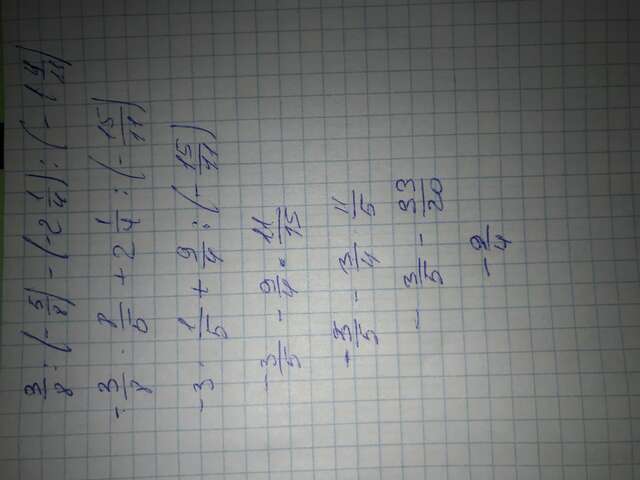 3/8 : (- 5/8) - (-2 1/4) : (- 1 4/11)
- 3/8 · 8/5 + 2 1/4 : (- 15/11)
-3 · 1/5 + 9/4 : (- 15/11)
- 3/5 - 9/4 · 11/15
- 3/5 - 3/4 · 11/5
- 3/5 - 33/20
- 9/4